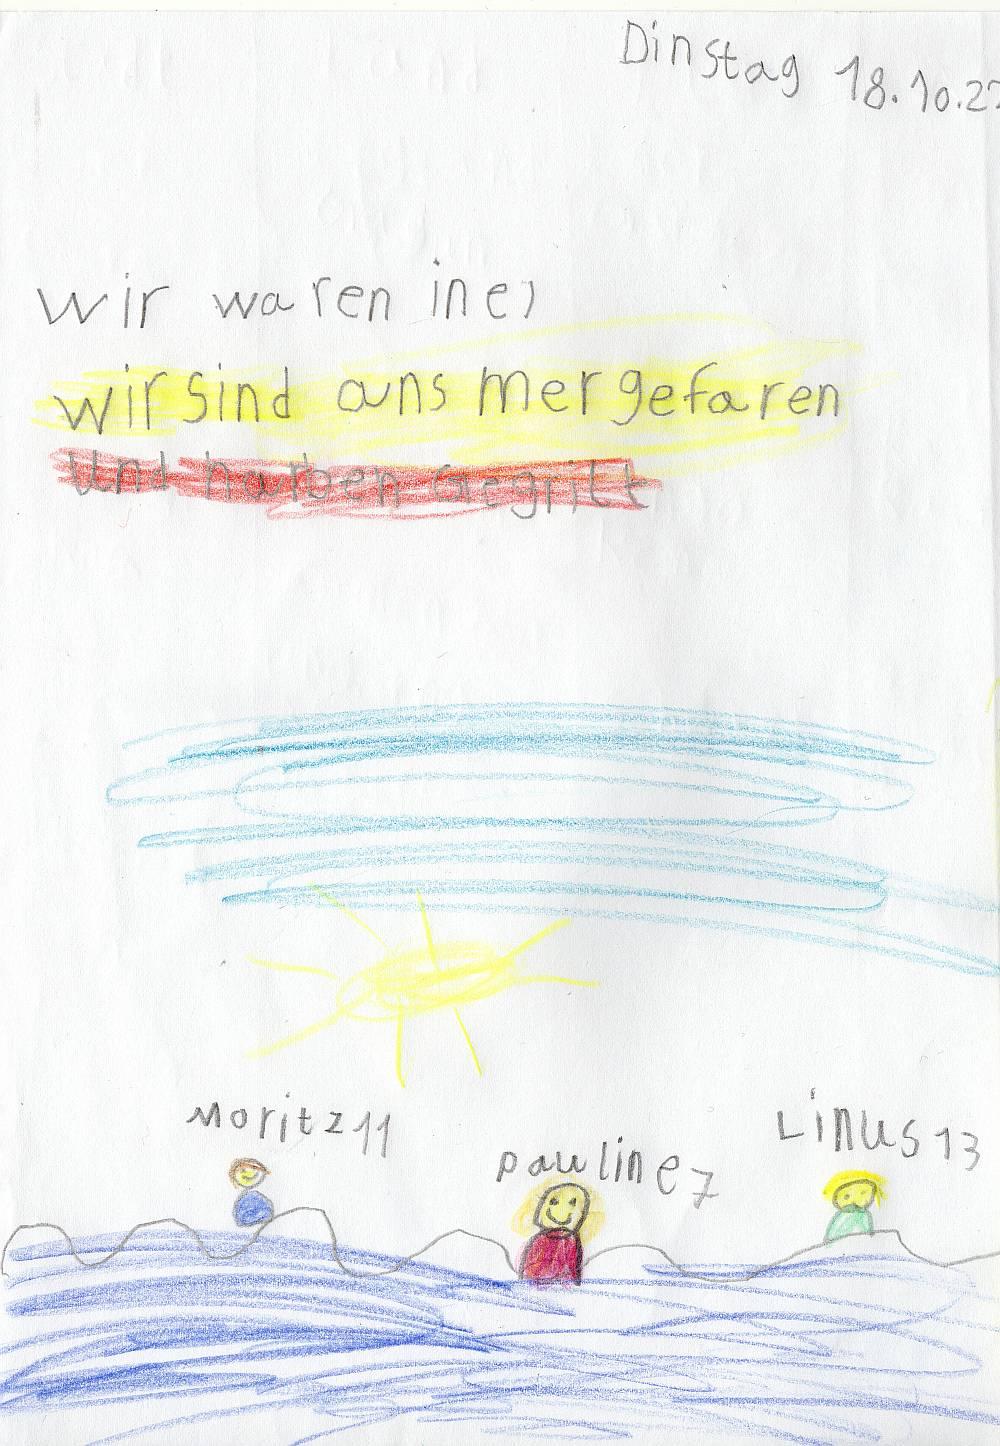 Dinstag 18.10.22
Wir waren in
wir sind ans mer gefaren
und haben Gegrilt
Moritz 11
pauline 7
Linus 13